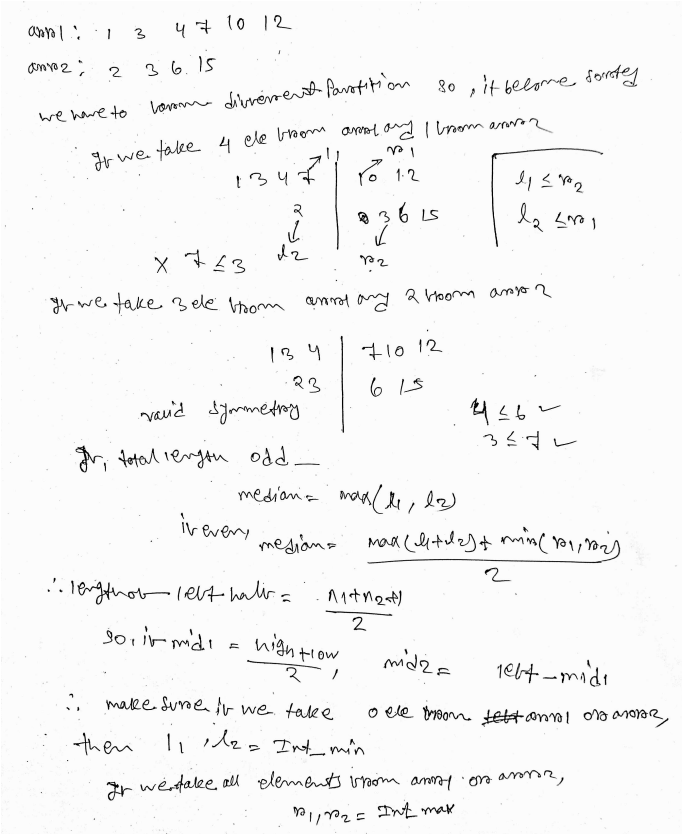 arr1: 1 3 4 7 10 12
arr2: 2 3 6 15
we have to form different partition so, it become sorted
If we take 4 ele from arr1 and 1 from arr2
1 3 4 7 l1 | r1 10 12
2 | 3 6 15
l1 ≤ r2
l2 ≤ r1
l2 r2
x 7 ≤ 3
If we take 3 ele from arr1 and 2 from arr2
1 3 4 | 7 10 12
2 3 | 6 15
valid symmetry
4 ≤ 6 ✓
3 ≤ 7 ✓
If, total length odd _
median = max(l1, l2)
if even, median = max(l1+l2) + min(r1, r2)
2
∴ length of left half = n1+n2+1
2
so, if mid1 = high + low
2 , mid2 = left - mid1
∴ make sure if we take 0 ele from arr1 or arr2,
then l1, l2 = Int_min
If we take all elements from arr1 or arr2,
r1, r2 = Int max